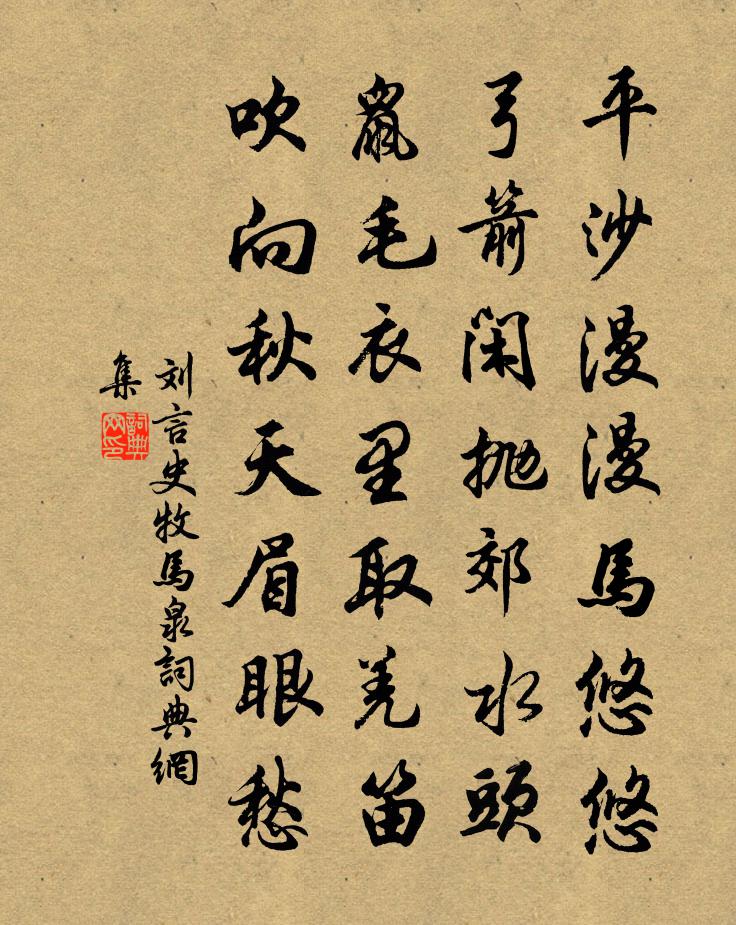 平沙漫漫馬悠悠
弓箭閑抛郊水頭
鼠毛衣里取羌笛
吹向秋天眉眼愁
刘言史牧馬泉詞典網
集
詞典
网印